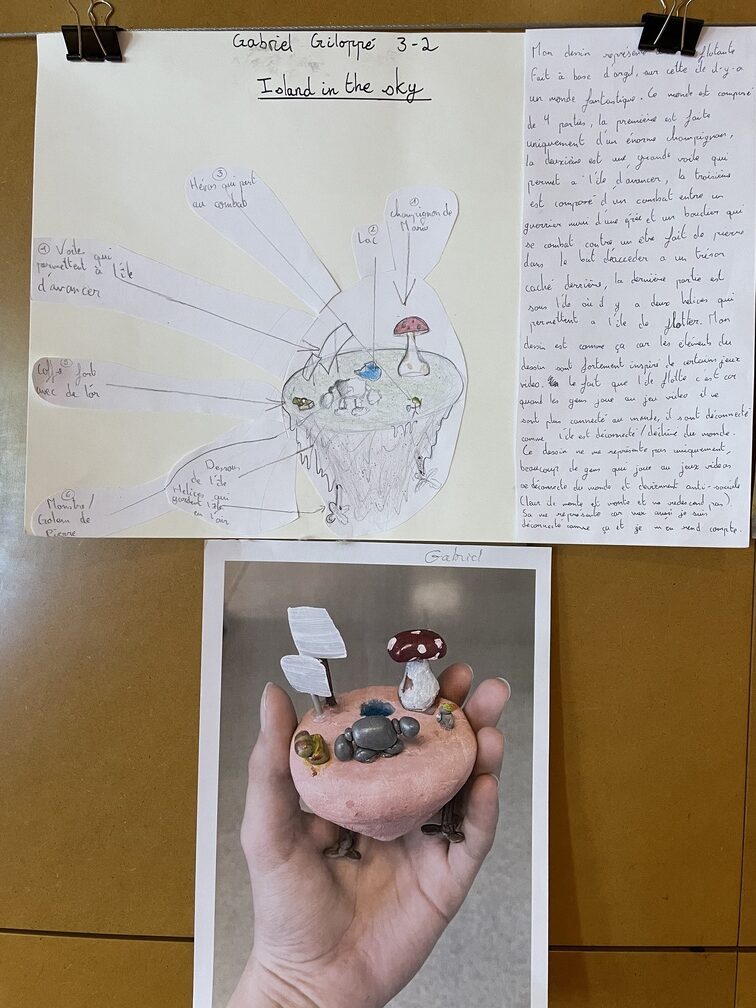 Gabriel Giloppé 3-2
Island in the sky
③
Héros qui part
au combat
①
champignon de
Mario
②
Lac
④ Voile qui
permettent à l'île
d'avancer
Coffe ⑤ fort
avec de l'or
Dessous
de l'île
Helices qui
gardent l'île
en l'air
⑥
Monstre/
Golem de
Pierre
Mon dessin représente flotante
Fait à base d'argil, sur cette île d-y-a
un monde fantastique. Ce monde est composé
de 4 parties, la première est faite
uniquement d'un énorme champignon,
la deuxième est une grande voile qui
permet a l'île d'avancer, la troisième
est composé d'un combat entre un
guerrier muni d'une épée et un bouclier qui
se combat contre un être fait de pierre
dans le but d'accéder a un trésor
caché derrière, la dernière partie est
sous l'île où il y a deux helices qui
permettent a l'île de flotter. Mon
dessin est comme ça car les élements du
dessin sont fortement inspiré de certains jeux
video. le fait que l'île flotte c'est car
quand les gens joue au jeu vidéo il ne
sont plus connecté au monde, il sont déconnecté
comme l'île est déconecté/décliné du monde.
Ce dessin ne me représente pas uniquement,
beaucoup de gens qui joue au jeux videos
se déconecte du monde et devienent anti-sociale
(leur île monte et monte et ne redescend pas)
Sa me représente car moi aussi je suis
déconnecté comme ça et je m'en rend compte.
Gabriel